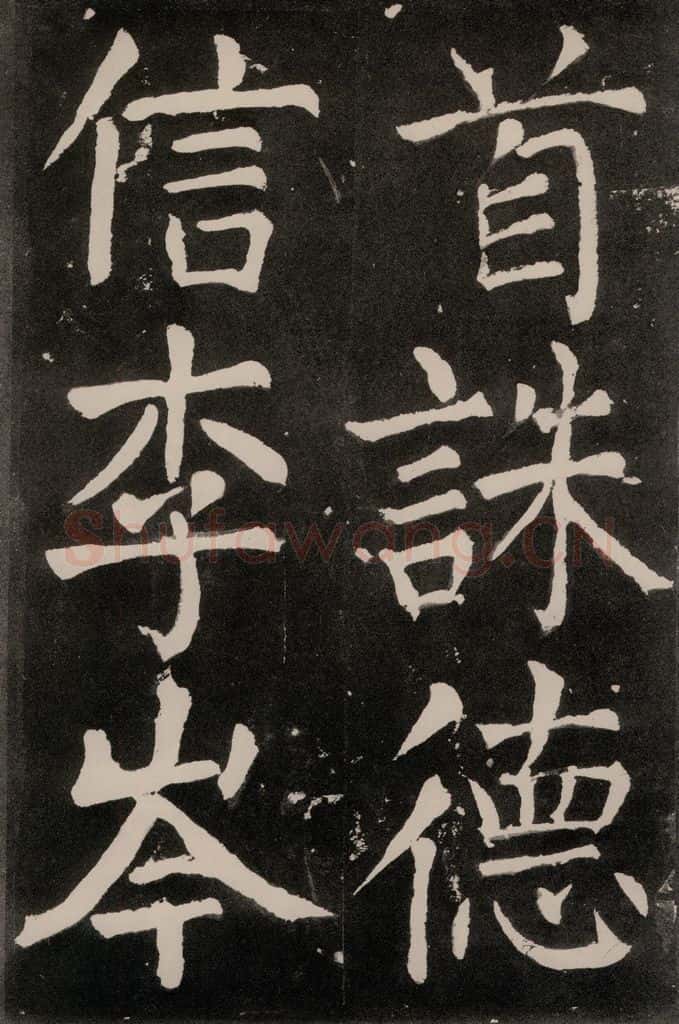 首誅德
信李岑
Shufawang.CN